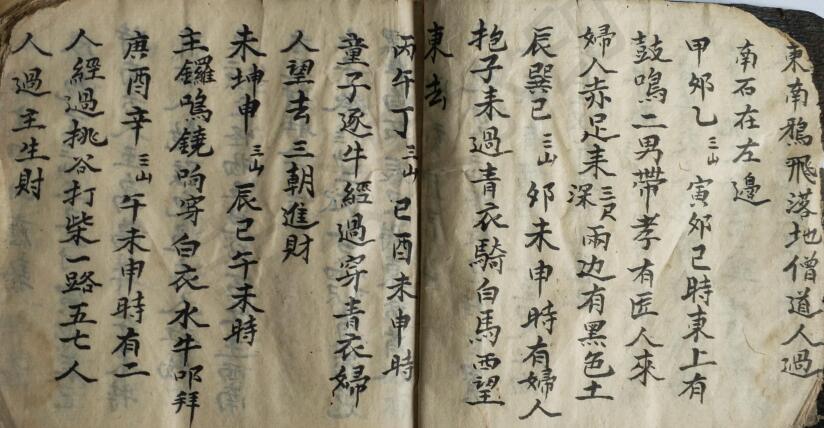 東南鴉飛落地僧道人過
南石在左邊
甲夘乙三山寅夘巳時東上有
鼓鳴二男帶孝有匠人來
婦人赤足来深三尺兩边有黑色土
辰巽巳三山夘未申時有婦人
抱子来過青衣騎白馬西望
東去
丙午丁三山巳酉未申時
童子逐牛經過穿青衣婦
人望去三朝進財
未坤申三山辰巳午未時
主鑼鳴鐃响穿白衣水牛叩拜
庚酉辛三山午未申時有二
人經過挑谷打柴一路五七人
人過主生財